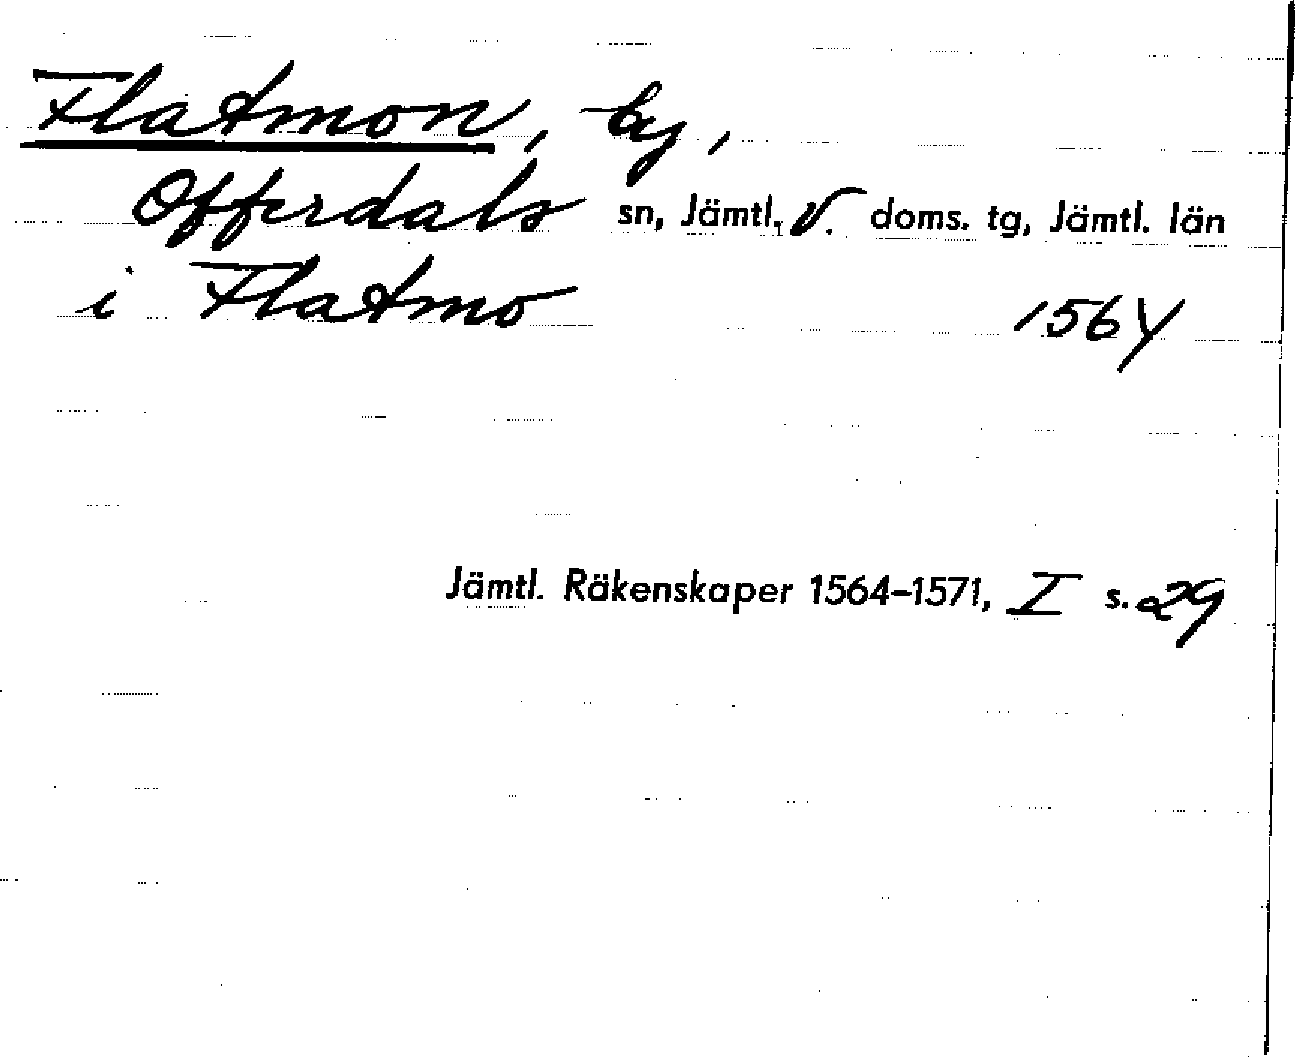 Flatmon, by,
Offerdals sn, Jämtl. V. doms. tg, Jämtl. län
i Flatmo 1564
Jämtl. Räkenskaper 1564-1571, I s. 29